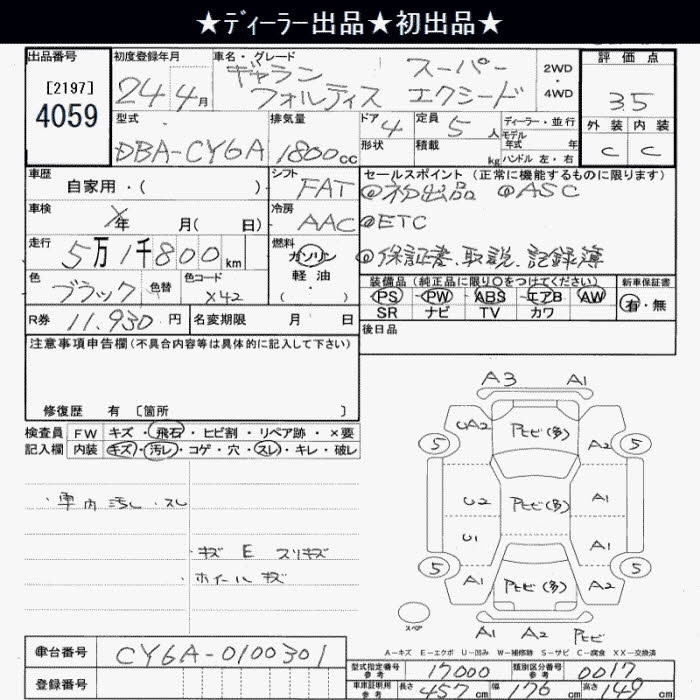 ★ディーラー出品★初出品★
出品番号 初度登録年月 車名・グレード 評価点
[2197]
4059
24年 4月
ギャラン スーパー 2WD
フォルティス エクシード 4WD
3.5
型式 排気量 ドア 4 定員 5人 ディーラー・並行
DBA-CY6A 1800cc 形状 積載 kg モデル年式 年
ハンドル 左・右
外装 内装
C C
車歴 シフト セールスポイント (正常に機能するものに限ります)
自家用・( ) FAT ◎初出品 ◎ASC
車検 冷房
×年 月( 日) AAC ◎ETC
走行 燃料
5万1千800km ガソリン ◎保証書、取説、記録簿
軽油
・( )
色 色替 色コード
ブラック X42
装備品(純正品に限り○をつけてください) 新車保証書
PS PW ABS エアB AW 有・無
SR ナビ TV カワ
R券 11,930円 名変期限 月 日 後日品
注意事項申告欄(不具合内容等は具体的に記入して下さい)
修復歴 有 〔箇所 〕
検査員 FW キズ・飛石・ヒビ割・リペア跡・×要
記入欄 内装 キズ・汚レ・コゲ・穴・スレ・キレ・破レ
・車内汚レ・スレ
キズ E スリキズ
ホイールキズ
A3 A1
UA2 Pヒビ(多) A2
5 5
U2 Pヒビ(多) A1
U1 A1
5 5
A1 Pヒビ(多) A2
スペア
A1 A2 Pヒビ
A-キズ E-エクボ U-凹み W-補修跡 S-サビ C-腐食 XX-交換済
車台番号 CY6A-0100301
登録番号
型式指定番号 参考 17000 類別区分番号 参考 0017
車庫証明用 参考 長さ 457cm 幅 176cm 高さ 149cm